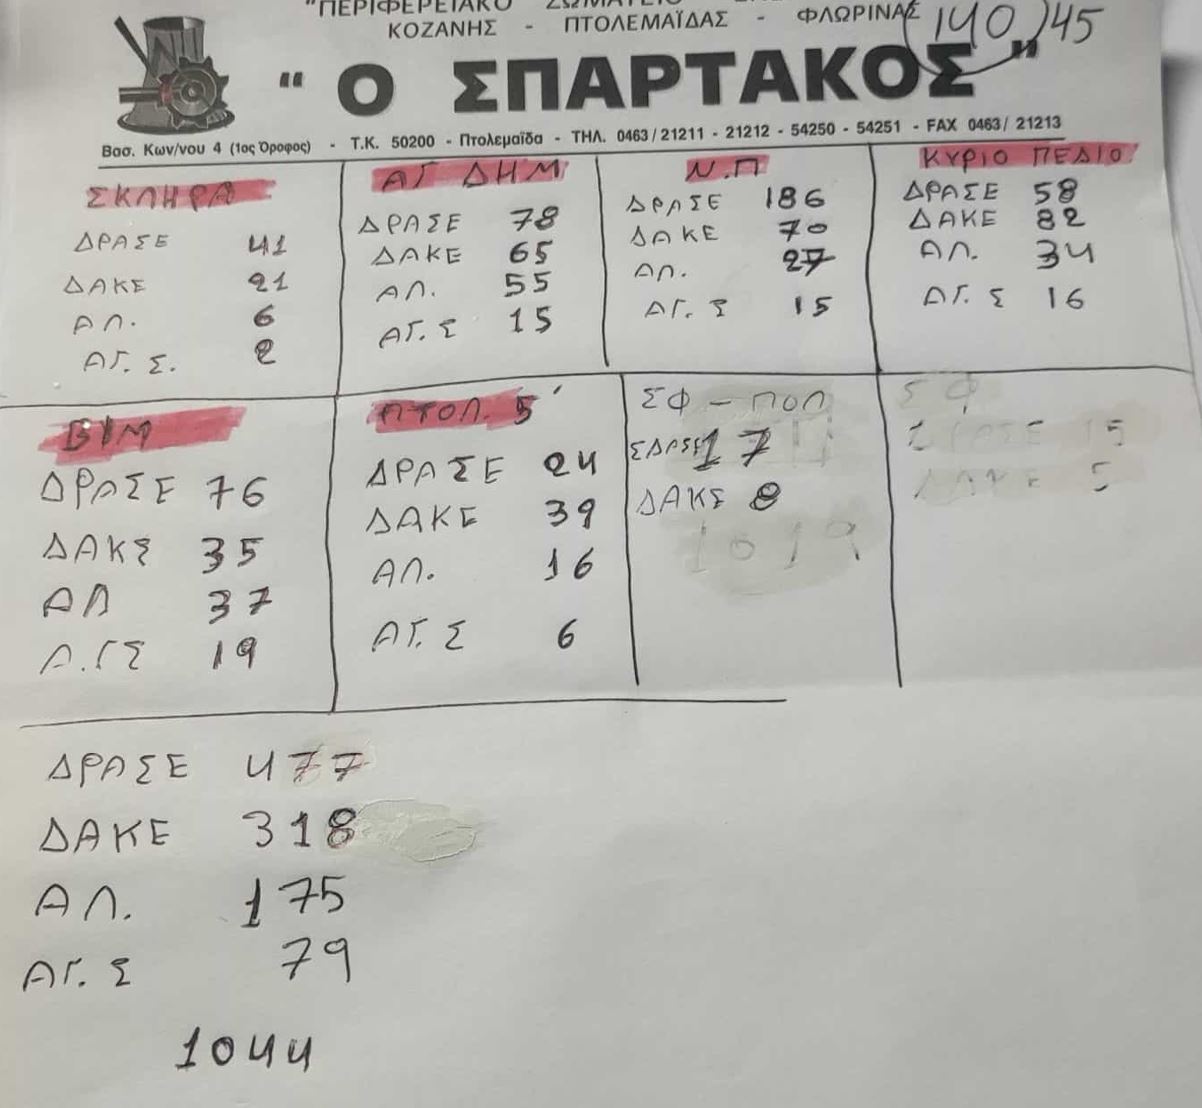 "ΠΕΡΙΦΕΡΕΙΑΚΟ
ΚΟΖΑΝΗΣ - ΠΤΟΛΕΜΑΪΔΑΣ - ΦΛΩΡΙΝΑΣ
140 45
" Ο ΣΠΑΡΤΑΚΟΣ "
Βασ. Κων/νου 4 (1ος Όροφος) - Τ.Κ. 50200 - Πτολεμαΐδα - ΤΗΛ. 0463/21211 - 21212 - 54250 - 54251 - FAX 0463/ 21213
ΣΚΛΗΡΑ
ΔΡΑΣΕ 41
ΔΑΚΕ 21
ΑΛ. 6
ΑΓ. Σ. 2
ΑΓ ΔΗΜ
ΔΡΑΣΕ 78
ΔΑΚΕ 65
ΑΛ. 55
ΑΓ. Σ 15
Ν.Π
ΔΡΑΣΕ 186
ΔΑΚΕ 70
ΑΛ. 27
ΑΓ. Σ 15
ΚΥΡΙΟ ΠΕΔΙΟ
ΔΡΑΣΕ 58
ΔΑΚΕ 82
ΑΛ. 34
ΑΓ. Σ 16
ΔΡΑΣΕ 76
ΔΑΚΕ 35
ΑΛ 37
Α.ΓΣ 19
ΠΤΟΛ. 5΄
ΔΡΑΣΕ 24
ΔΑΚΕ 39
ΑΛ. 16
ΑΓ. Σ 6
ΣΦ - ΠΟΛ
17
ΔΑΚΕ 8
ΔΡΑΣΕ 477
ΔΑΚΕ 318
ΑΛ. 175
ΑΓ. Σ 79
1044